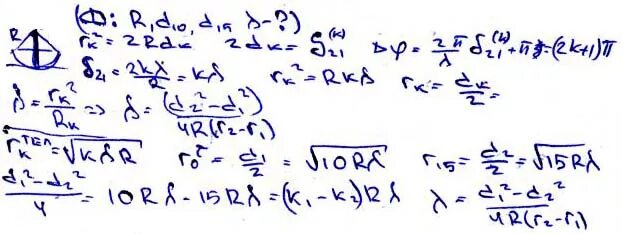 (Ф: R, d10, d15, λ-?)
R r_k² = 2Rd_k 2d_k = δ_21^(k) Δφ = 2π/λ δ_21^(k) + π = (2k+1)π
δ_21 = 2kλ/2 = kλ r_k² = Rkλ r_k = d_k/2 =
λ = r_k²/Rk => λ = (d_2² - d_1²)/4R(r_2 - r_1)
r_k^ТЕМ = √kλR r_10^т = d_1/2 = √10Rλ r_15 = d_2/2 = √15Rλ
(d_1² - d_2²)/4 = 10Rλ - 15Rλ = (k_1 - k_2)Rλ λ = (d_1² - d_2²)/4R(r_2 - r_1)